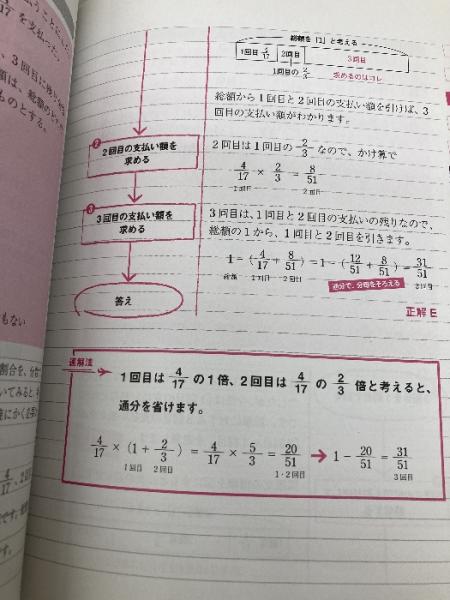 総額を「1」と考える
1回目 4/17 2回目 3回目
1回目の 2/3 求めるのはコレ
総額から1回目と2回目の支払い額を引けば、3
回目の支払い額がわかります。
2
2回目の支払い額を
求める
2回目は1回目の 2/3 なので、かけ算で
4/17 × 2/3 = 8/51
1回目 2回目
3
3回目の支払い額を
求める
3回目は、1回目と2回目の支払いの残りなので、
総額の1から、1回目と2回目を引きます。
1－(4/17 + 8/51) = 1－(12/51 + 8/51) = 31/51
総額 1回目 2回目 通分で、分母をそろえる 3回目
答え
正解 E
速解法
1回目は 4/17 の1倍、2回目は 4/17 の 2/3 倍と考えると、
通分を省けます。
4/17 × (1 + 2/3) = 4/17 × 5/3 = 20/51 → 1 － 20/51 = 31/51
1回目 2回目 1・2回目 3回目
17 を支払った。
ものとする。
もない